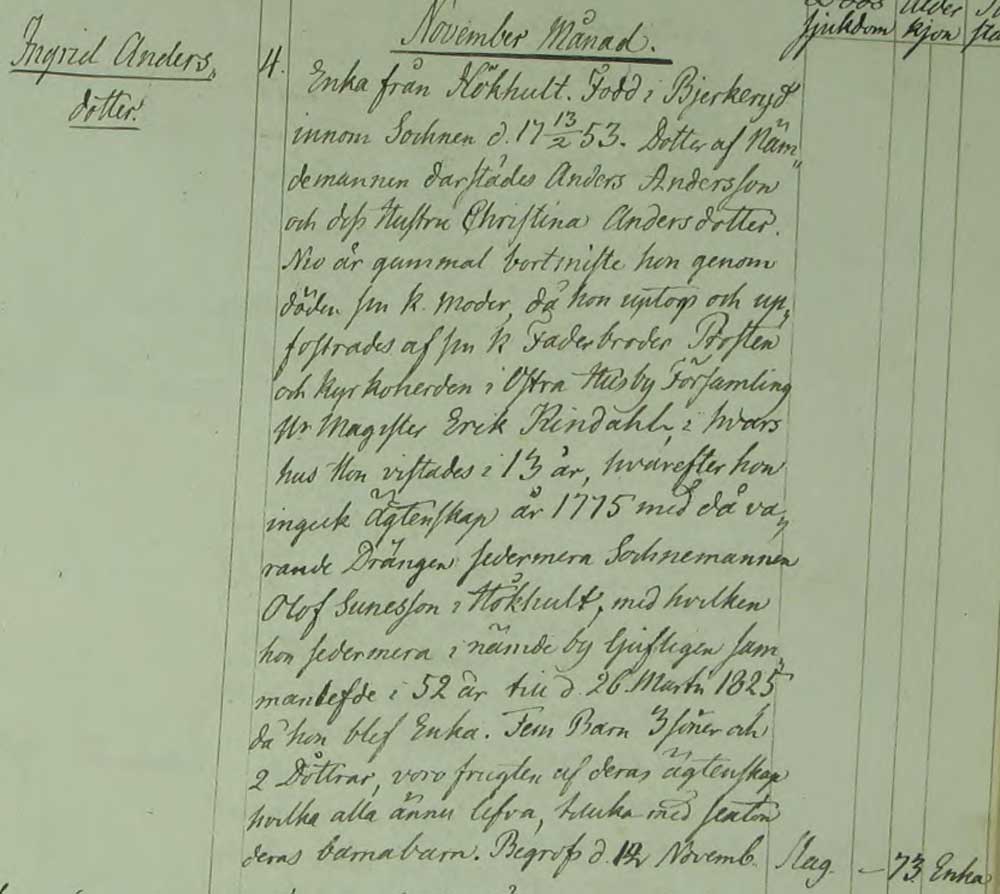 November Månad.
sjukdom kjön
Ingrid Anders„
dotter.
4. Enka från Hökhult. Född i Bjerkeryd
innom Sochnen d. 17 13/2 53. Dotter af Näm„
demannen därstädes Anders Andersson
och dess Hustru Christina Andersdotter.
Nio år gammal bortmiste hon genom
döden sin k. Moder, då hon uptogs och up„
fostrades af sin k Faderbroder Prosten
och Kyrkoherden i Östra Husby Församling
Hr Magister Erik Kindahl, i hvars
hus Hon vistades i 13 år, hvarefter hon
ingick Ägtenskap år 1775 med då va„
rande Drängen sedermera Sochnemannen
Olof Sunesson i Hökhult, med hvilken
hon sedermera i nämde by ljufligen sam„
manlefde i 52 år till d. 26 Martii 1825
då hon blef Enka. Fem Barn 3 söner och
2 Döttrar, voro frugten af deras ägtenskap
hvilka alla ännu lefva, tillika med
deras barnabarn. Begrofs d. 12 Novemb. Slag. – 73 Enka